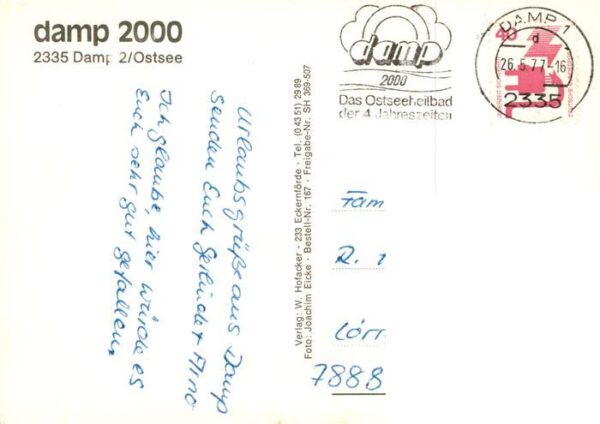 damp 2000
2335 Damp 2/Ostsee
damp
2000
Das Ostseeheilbad
der 4 Jahreszeiten
DAMP 1
d
26.5.77-16
2335
40
Urlaubsgrüße aus Damp
senden Euch Gerlinde + Arno
Ich glaube, hier würde es
Euch sehr gut gefallen.
Verlag: W. Hofacker · 233 Eckernförde · Tel. (0 43 51) 29 89
Foto: Joachim Eicke · Bestell-Nr. 167 · Freigabe-Nr. SH 369-507
Fam
R.
Lörr
7888